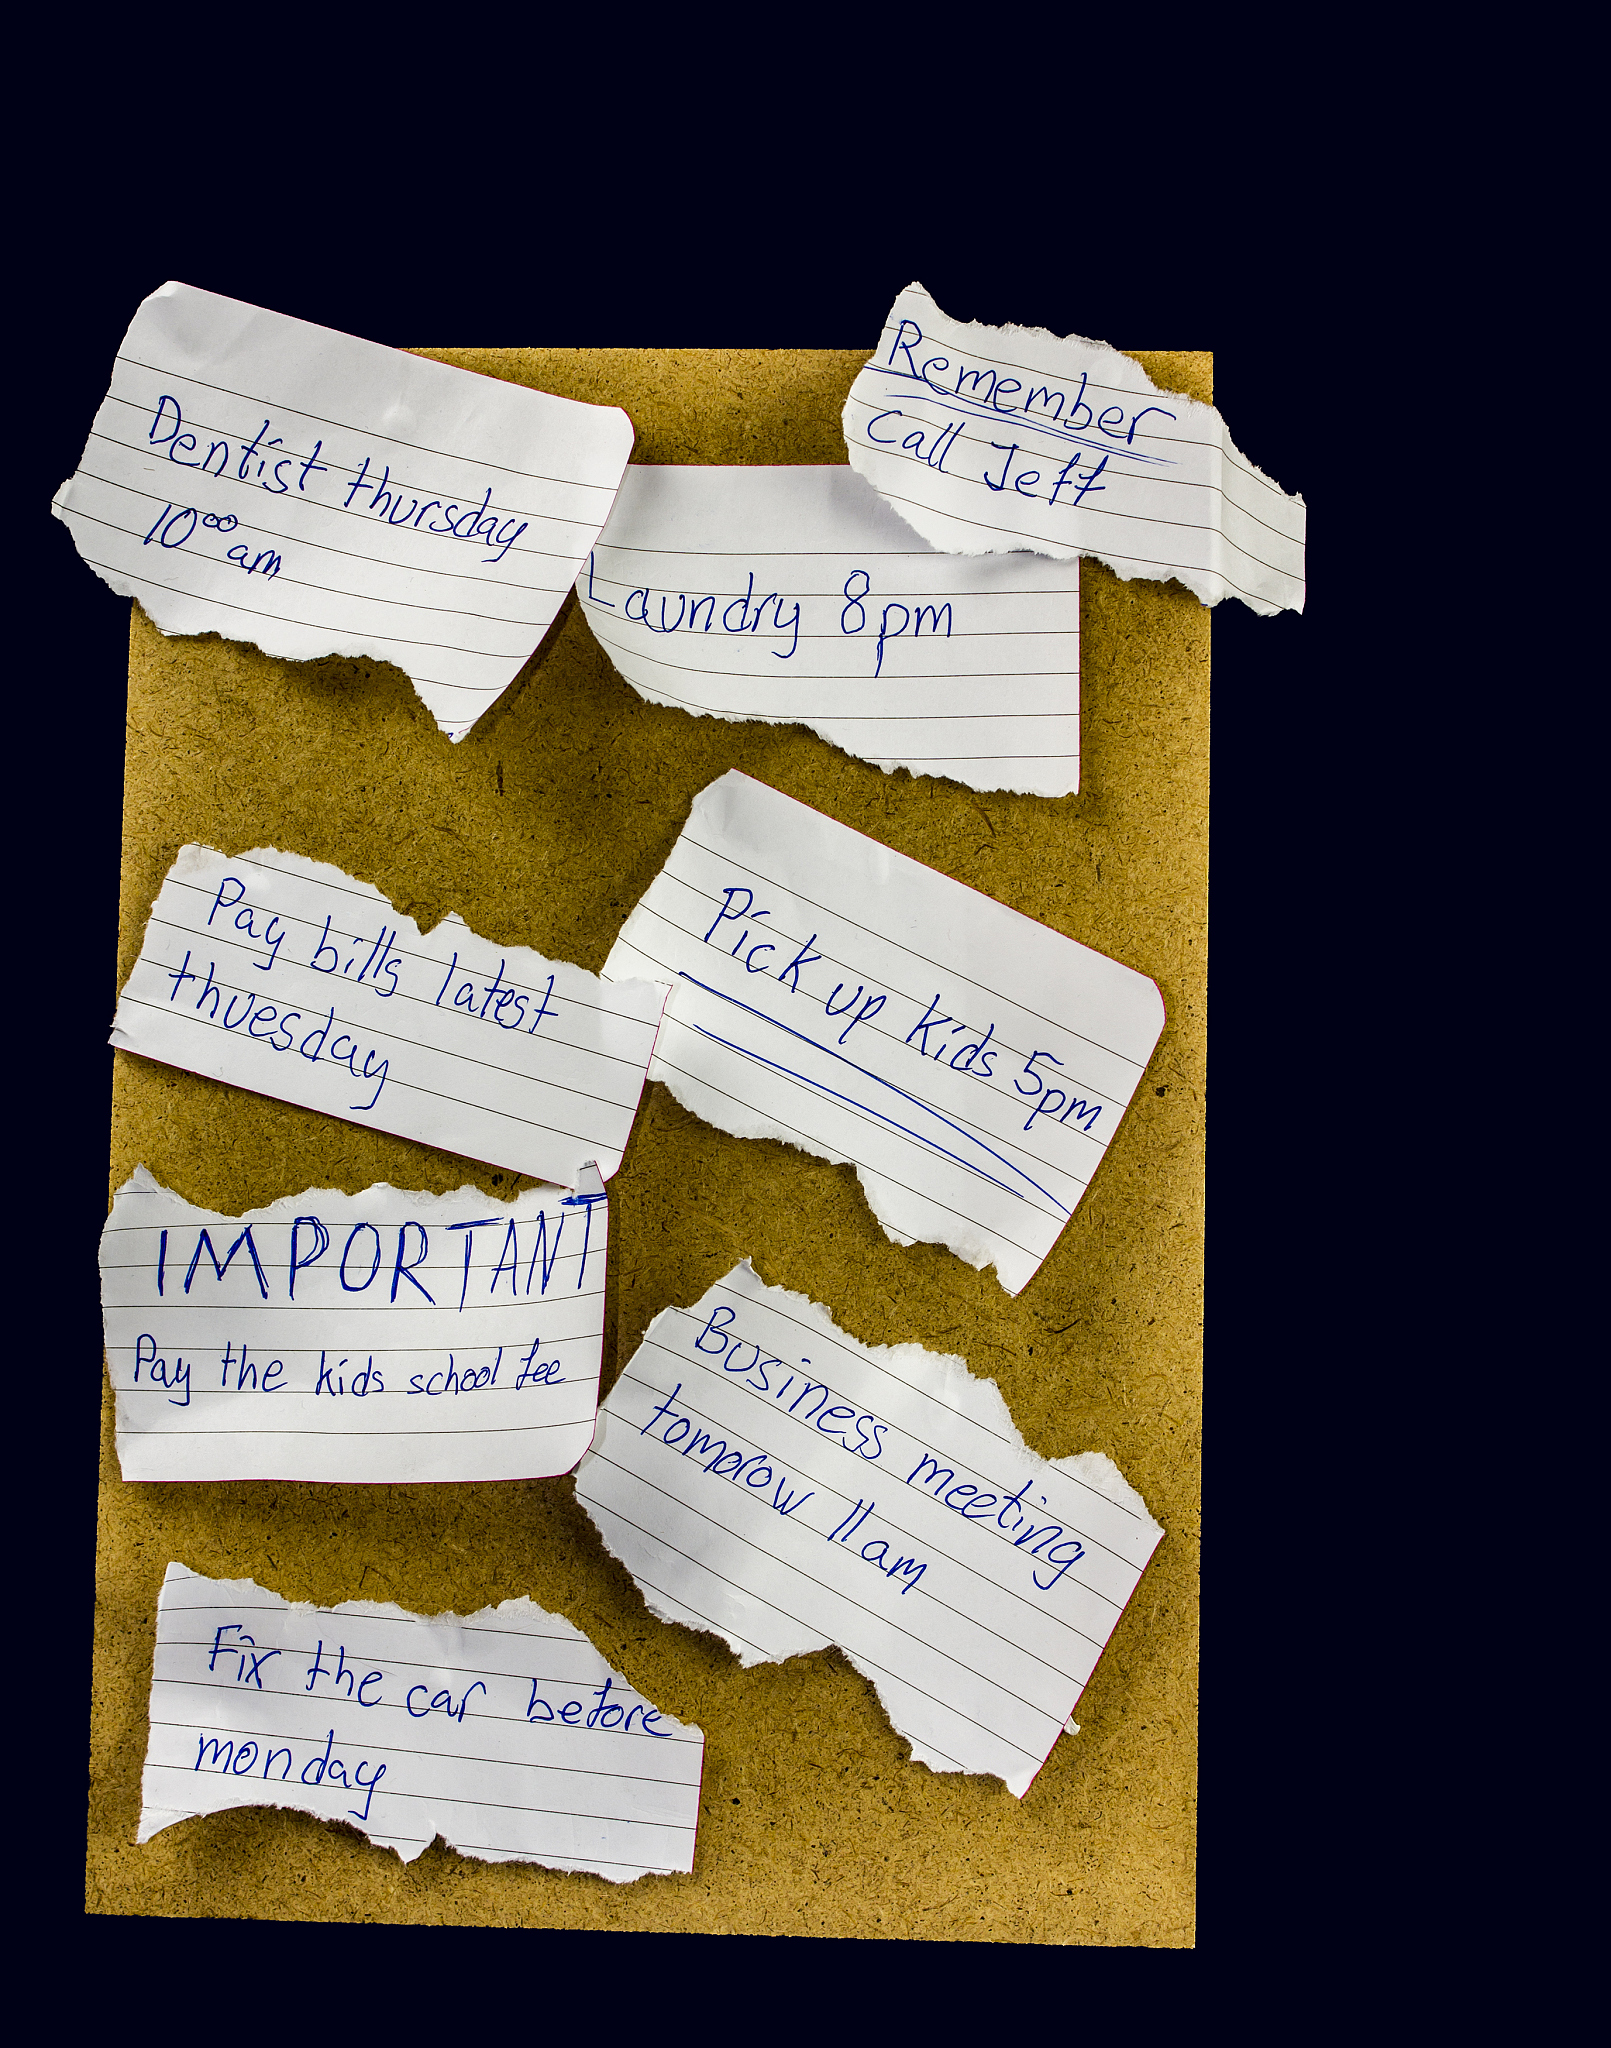 Dentist thursday
10⁰⁰am
Remember
Call Jeff
Laundry 8pm
Pay bills latest
thuesday
Pick up kids 5pm
IMPORTANT
Pay the kids school fee
Business meeting
tomorow 11am
Fix the car before
monday